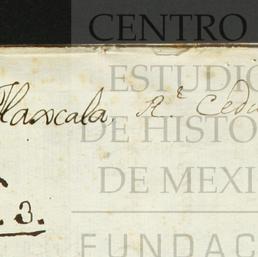 CENTRO
ESTUDIO
DE HISTO
DE MEXI
FUNDAC
Tlaxcala, Rl. Cedu
3.